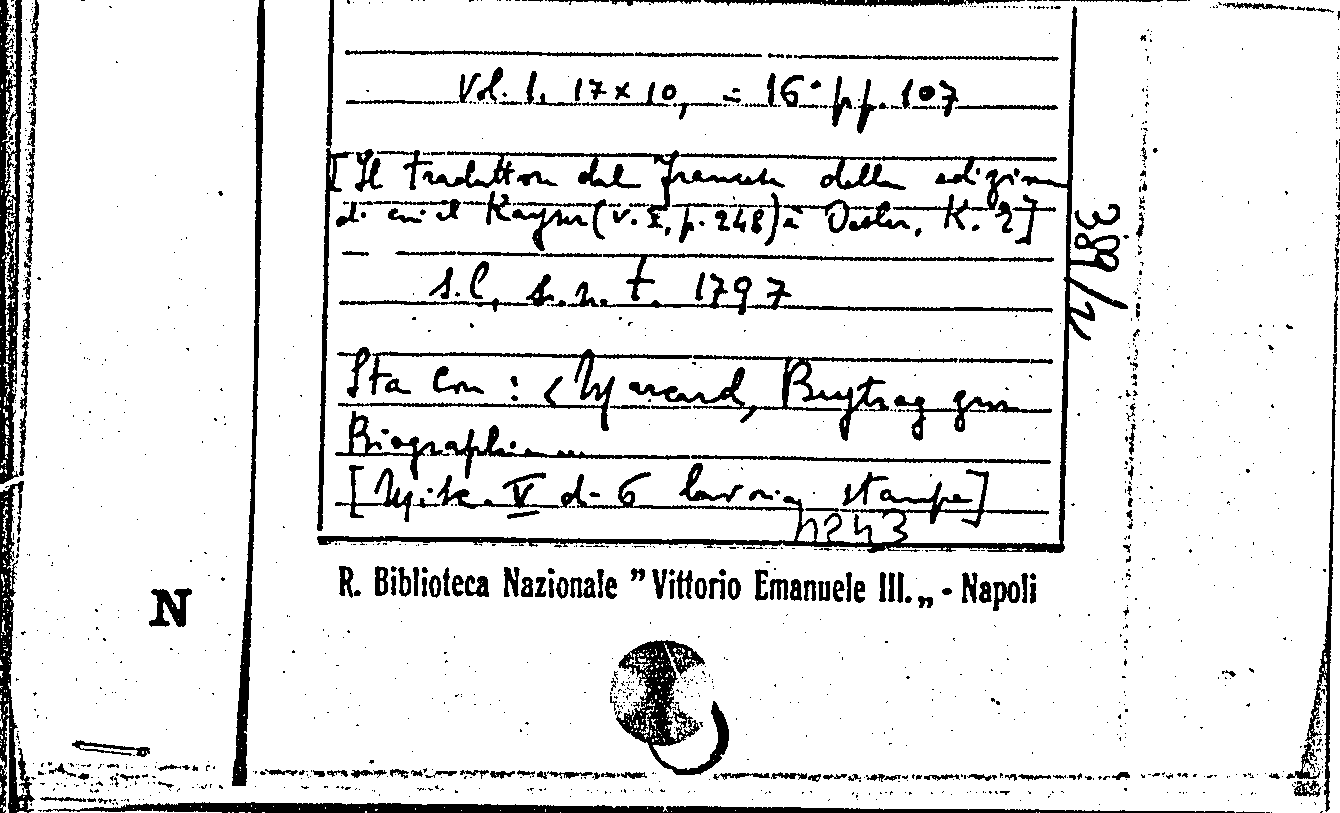 Vol. 1. 17 x 10, = 16° pp. 107
[Il traduttore dal francese della edizione
di cui il Kayser (v. I, p. 248) è Oesler, K. ?]
s.l, s.n.t. 1797
Sta con : < Marcard, Beytrag zur
Biographie ...
[Misc. V di 6 stampe]
N° 43
389/2
R. Biblioteca Nazionale "Vittorio Emanuele III.„ - Napoli
N